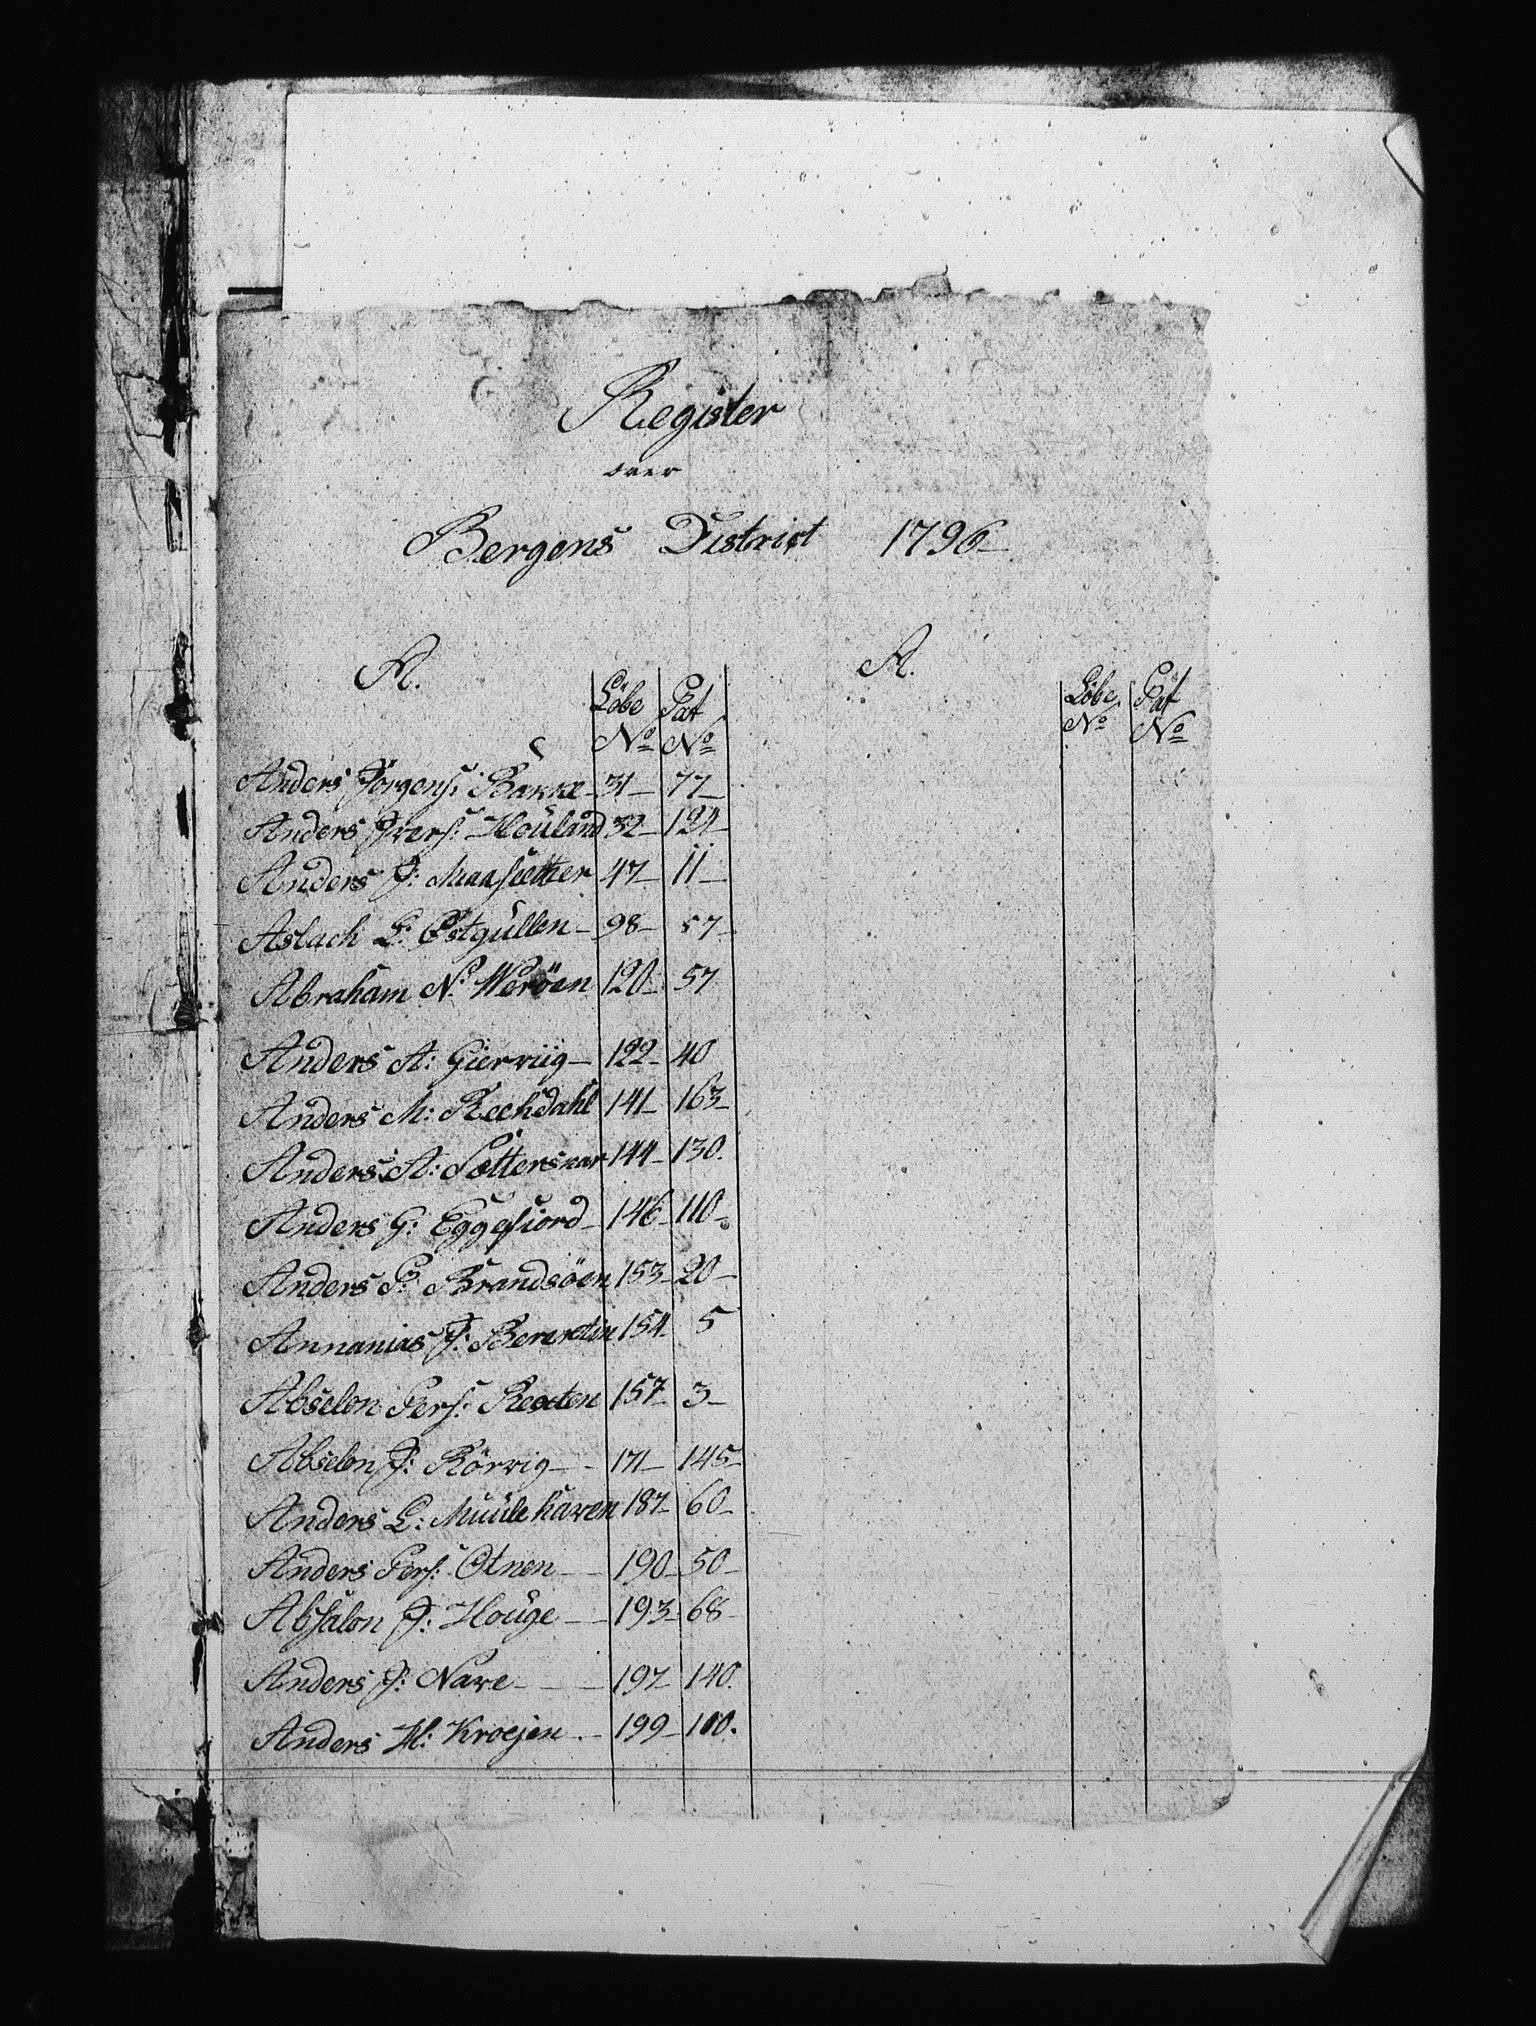 Register
over
Bergens District 1796
A. A.
Löbe Pat Löbe Pat
No No No No
Anders Jörgens: Bakke 31 77
Anders Ivers: Houland 32 124
Anders J: Maasætter 47 11
Aslach L: Østgullen 98 57
Abraham N: Weröen 120 57
Anders A: Giervüg 122 40
Anders M: Rechdahl 141 163
Anders A: Sætterskar 144 130
Anders G: Eggesiord 146 110
Anders P: Brandsöen 153 20
Annanias J: 154 5
Abselon Pers: Rexten 157 3
Abselon J: Rörvig 171 145
Anders L: Muule haven 187 60
Anders Pers: Otnen 190 50
Absalon J: Houge 193 68
Anders J: Nave 197 140
Anders H: Kroejen 199 100